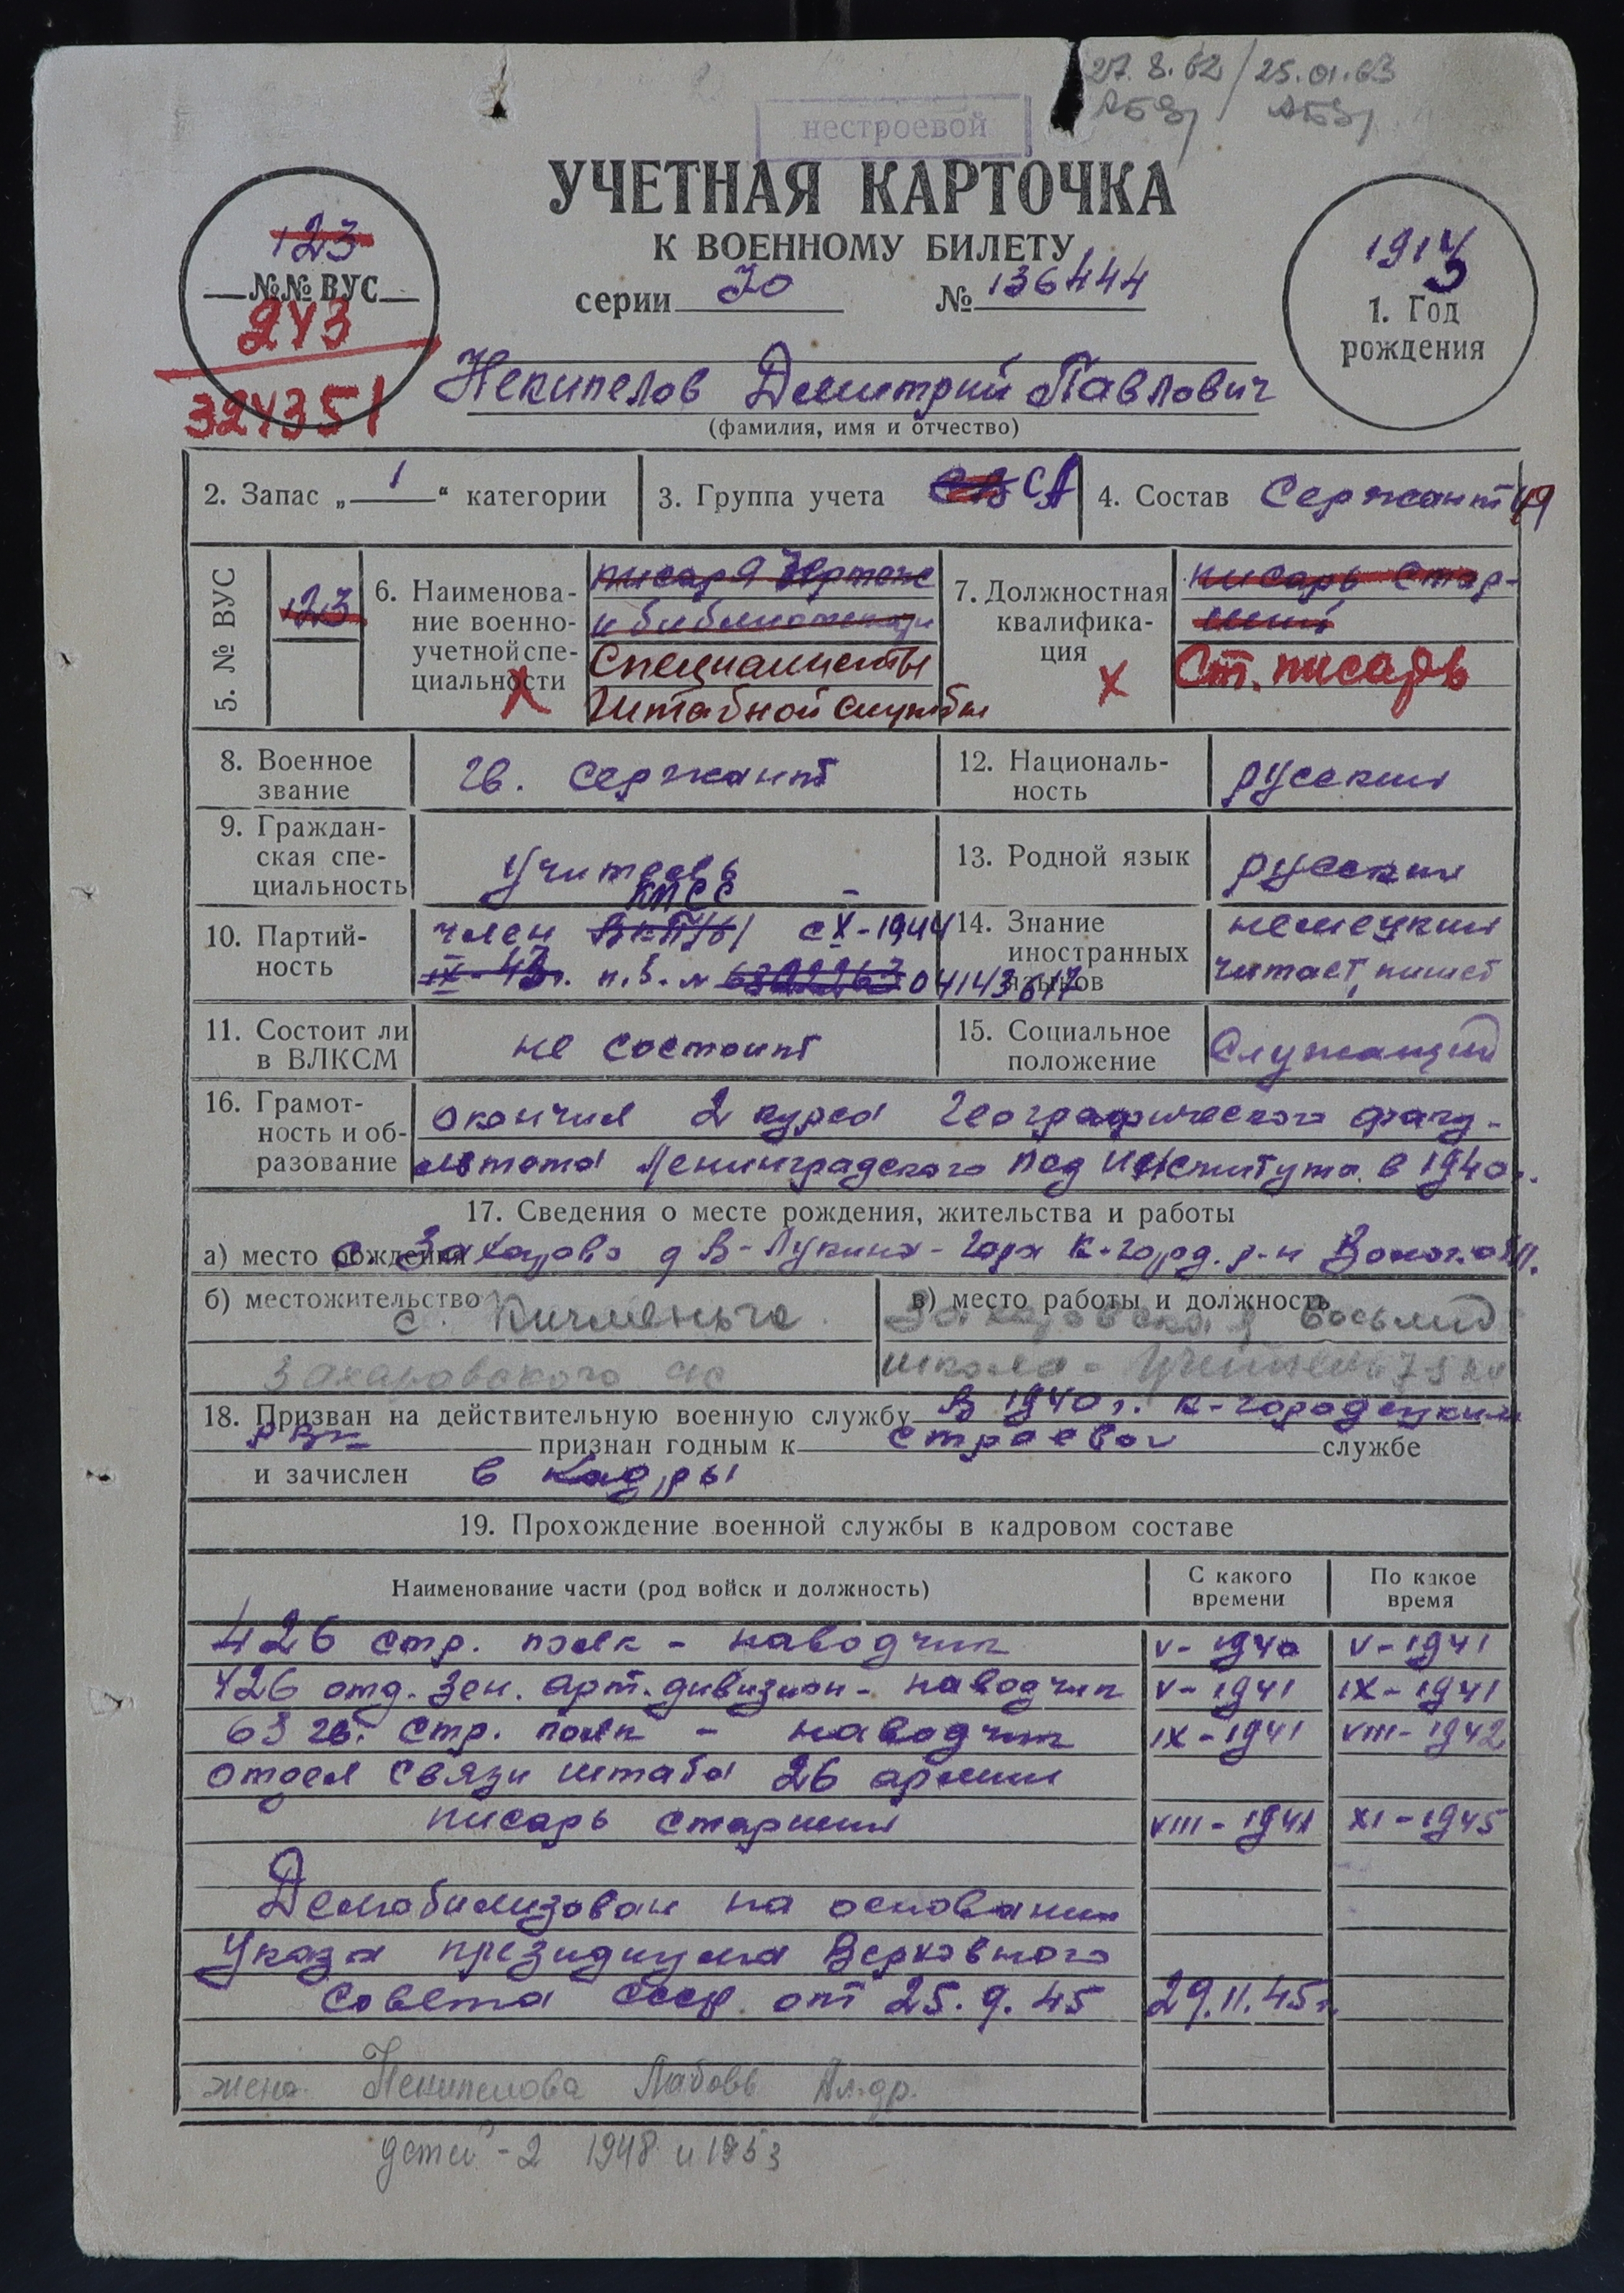 27.8.62 / 25.01.63
нестроевой
УЧЕТНАЯ КАРТОЧКА
К ВОЕННОМУ БИЛЕТУ
серии № 136444
123
№№ ВУС
243
324351
1. Год
рождения
Некипелов Дмитрий Павлович
(фамилия, имя и отчество)
2. Запас „ 1 “ категории
3. Группа учета СА
4. Состав Сержант
5. № ВУС
123
6. Наименова-
ние военно-
учетной спе-
циальности
писаря
и библиотекари
Специалисты
штабной службы
7. Должностная
квалифика-
ция
писарь стар-
ший
Ст. писарь
8. Военное
звание
гв. сержант
12. Националь-
ность
русский
9. Граждан-
ская спе-
циальность
Учитель
13. Родной язык
русский
10. Партий-
ность
КПСС
член ВКП/б/ с X-1944
п.б. № 04143617
14. Знание
иностранных
языков
немецкий
читает, пишет
11. Состоит ли
в ВЛКСМ
не состоит
15. Социальное
положение
Служащий
16. Грамот-
ность и об-
разование
окончил 2 курса географического факу-
льтета Ленинградского Пед Института в 1940г.
17. Сведения о месте рождения, жительства и работы
а) место рождения с. Захарово д В-Лукина-Гора К-Город. р-н Волог. обл.
б) местожительство
с. Кичменьга
Захаровского с/с
в) место работы и должность
Захаровская восьмил
школа - учитель
18. Призван на действительную военную службу в 1940 г. К-Городецким
РВК признан годным к строевой службе
и зачислен в кадры
19. Прохождение военной службы в кадровом составе
Наименование части (род войск и должность)
С какого
времени
По какое
время
426 стр. полк - наводчик V-1940 V-1941
426 отд. зен. арт. дивизион - наводчик V-1941 IX-1941
63 гв. стр. полк - наводчик IX-1941 VIII-1942
отдел связи штаба 26 армии
писарь старший VIII-194 XI-1945
Демобилизован на основании
Указа президиума Верховного
Совета СССР от 25.9.45 29.11.45г.
жена Некипелова Любовь Ал-др.
детей - 2 1948 и 1953